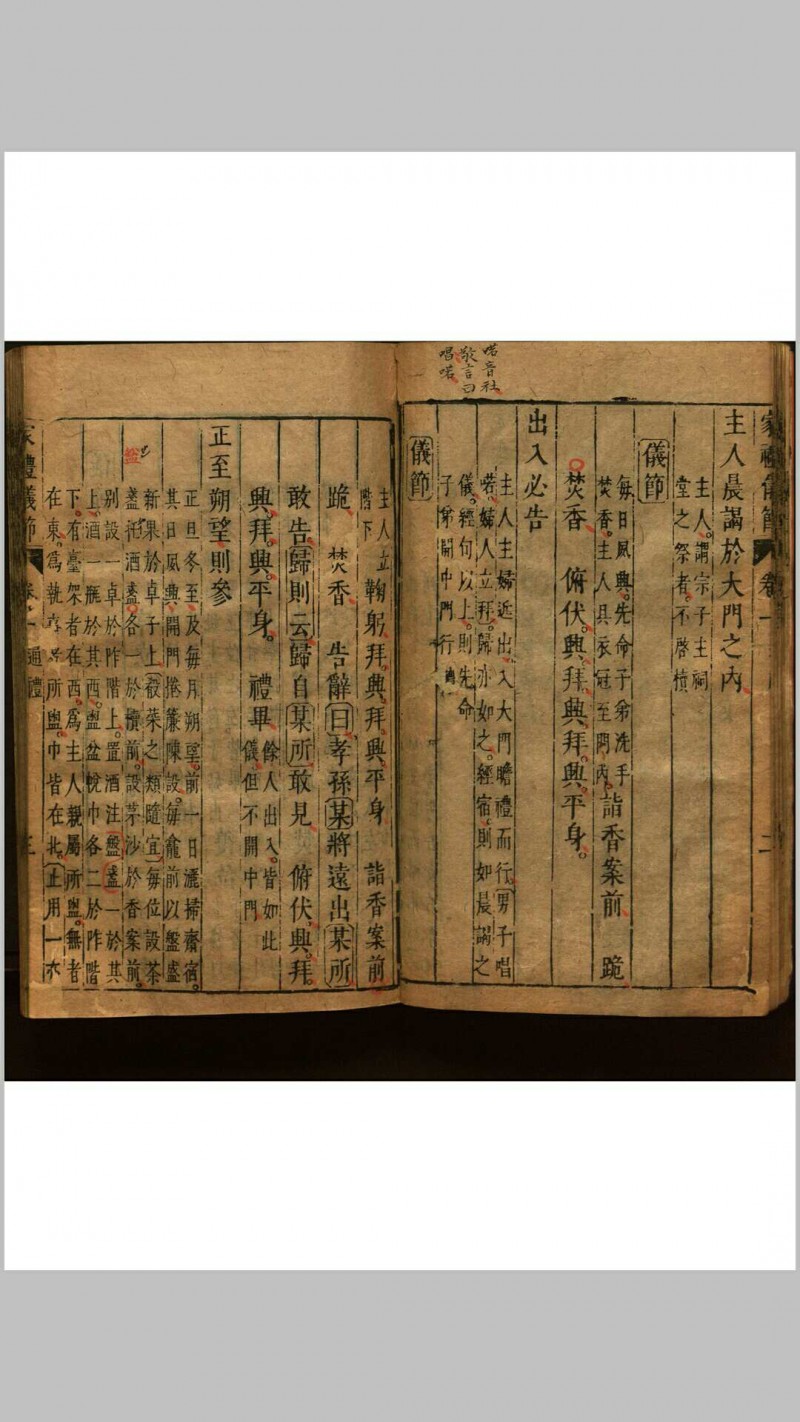 喏音社
敬言曰
唱喏
家禮儀節 卷一 二
主人晨謁於大門之內
主人。謂宗子主祠
堂之祭者。不啓櫝
儀節
每日夙興。先命子弟洗手
焚香。主人具衣冠至閤內。
詣香案前 跪
焚香 俯伏。興。拜。興。拜。興。平身。
出入必告
主人主婦近出。入大門瞻禮而行。男子唱
喏。婦人立拜。歸亦如之。經宿。則如晨謁之
儀。經旬以上。則先命
子弟開中門。行
儀節
主人立
階下
鞠躬。拜。興。拜。興。平身 詣香案前
跪 焚香 告辭曰孝孫某將遠出某所
敢告歸則云歸自某所敢見 俯伏。興。拜。
興。拜。興。平身。 禮畢
餘人出入。皆如此
儀。但不開中門
正至朔望則參
正旦冬至。及每月朔望。前一日灑掃齋宿。
其日夙興。開門捲簾陳設。每龕前以盤盛
新果於卓子上。菽菜之類隨宜。每位設茶
盞托酒盞。各一於櫝前。設茅沙於香案前。
別設一卓於阼階上。置酒注盤盞一於其
上。酒一瓶於其西。盥盆帨巾各二於阼階
下。有臺架者在西。爲主人親屬所盥。無者
在東。爲執事者所盥。巾皆在北。正用一亦
家禮儀節 卷一 通禮 三